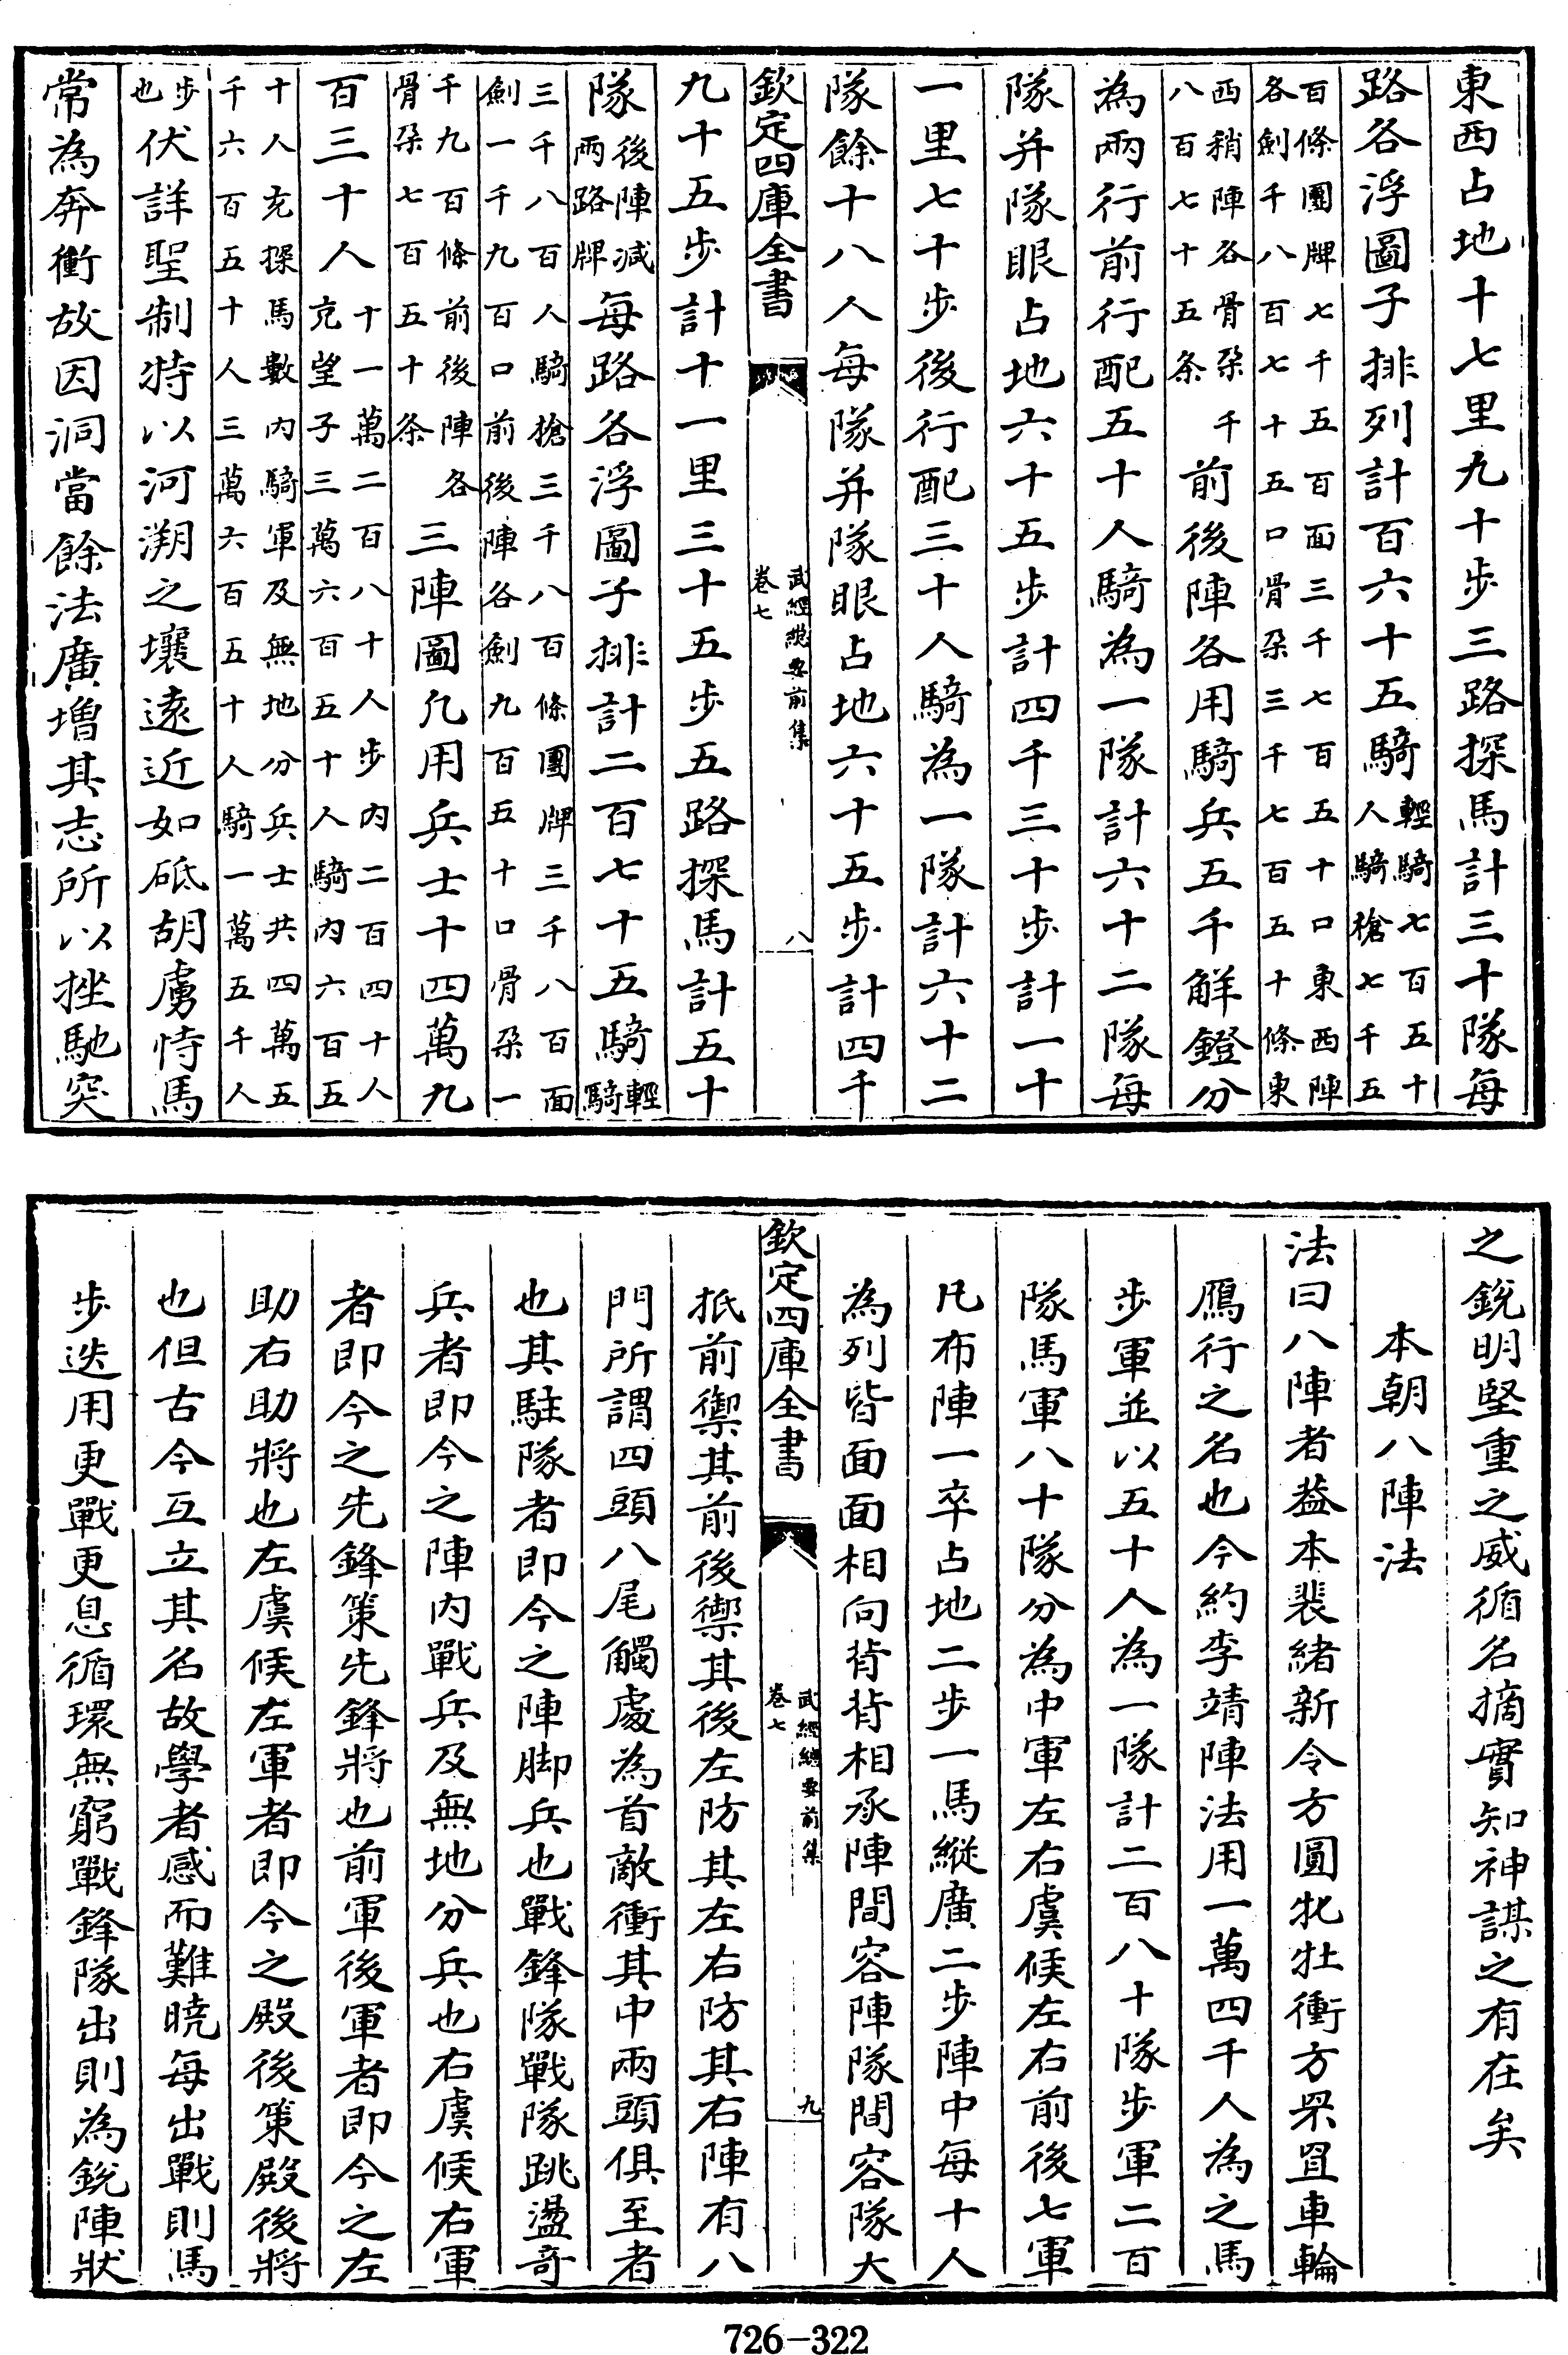 東西占地十七里九十步三路探馬計三十隊每
路各浮圖子排列計百六十五騎輕騎七百五十人騎槍七千五
百條團牌七千五百面三千七百五十口東西陣各劍千八百七十五口骨朶三千七百五十條東
西稍陣各骨朶千八百七十五条前後陣各用騎兵五千觧鐙分
為兩行前行配五十人騎為一隊計六十二隊每
隊并隊眼占地六十五步計四千三十步計一十
一里七十步後行配三十人騎為一隊計六十二
隊餘十八人每隊并隊眼占地六十五步計四千
欽定四庫全書
武經總要前集
卷七
八
九十五步計十一里三十五步五路探馬計五十
隊後陣減兩路牌每路各浮圖子排計二百七十五騎輕騎
三千八百人騎槍三千八百條團牌三千八百面劍一千九百口前後陣各劍九百五十口骨朶一
千九百條前後陣各骨朶七百五十条三陣圖凡用兵士十四萬九
百三十人十一萬二百八十人步內二百四十人充望子三萬六百五十人騎內六百五
十人充探馬數內騎軍及無地分兵士共四萬五千六百五十人三萬六百五十人騎一萬五千人
步也伏詳聖制特以河溯之壤遠近如砥胡虜恃馬
常為奔衝故因洞當餘法廣增其志所以挫馳突
之銳明堅重之威循名摘實知神謀之有在矣
本朝八陣法
法曰八陣者葢本裴緒新令方圓牝牡衝方罘罝車輪
鴈行之名也今約李靖陣法用一萬四千人為之馬
步軍並以五十人為一隊計二百八十隊步軍二百
隊馬軍八十隊分為中軍左右虞候左右前後七軍
凡布陣一卒占地二步一馬縱廣二步陣中每十人
為列皆面面相向背背相承陣間容陣隊間容隊大
欽定四庫全書
武經總要前集
卷七
九
抵前禦其前後禦其後左防其左右防其右陣有八
門所謂四頭八尾觸處為首敵衝其中兩頭俱至者
也其駐隊者即今之陣脚兵也戰鋒隊戰隊跳盪竒
兵者即今之陣內戰兵及無地分兵也右虞候右軍
者即今之先鋒策先鋒將也前軍後軍者即今之左
助右助將也左虞候左軍者即今之殿後策殿後將
也但古今互立其名故學者惑而難曉每出戰則馬
步迭用更戰更息循環無窮戰鋒隊出則為銳陣狀
726-322